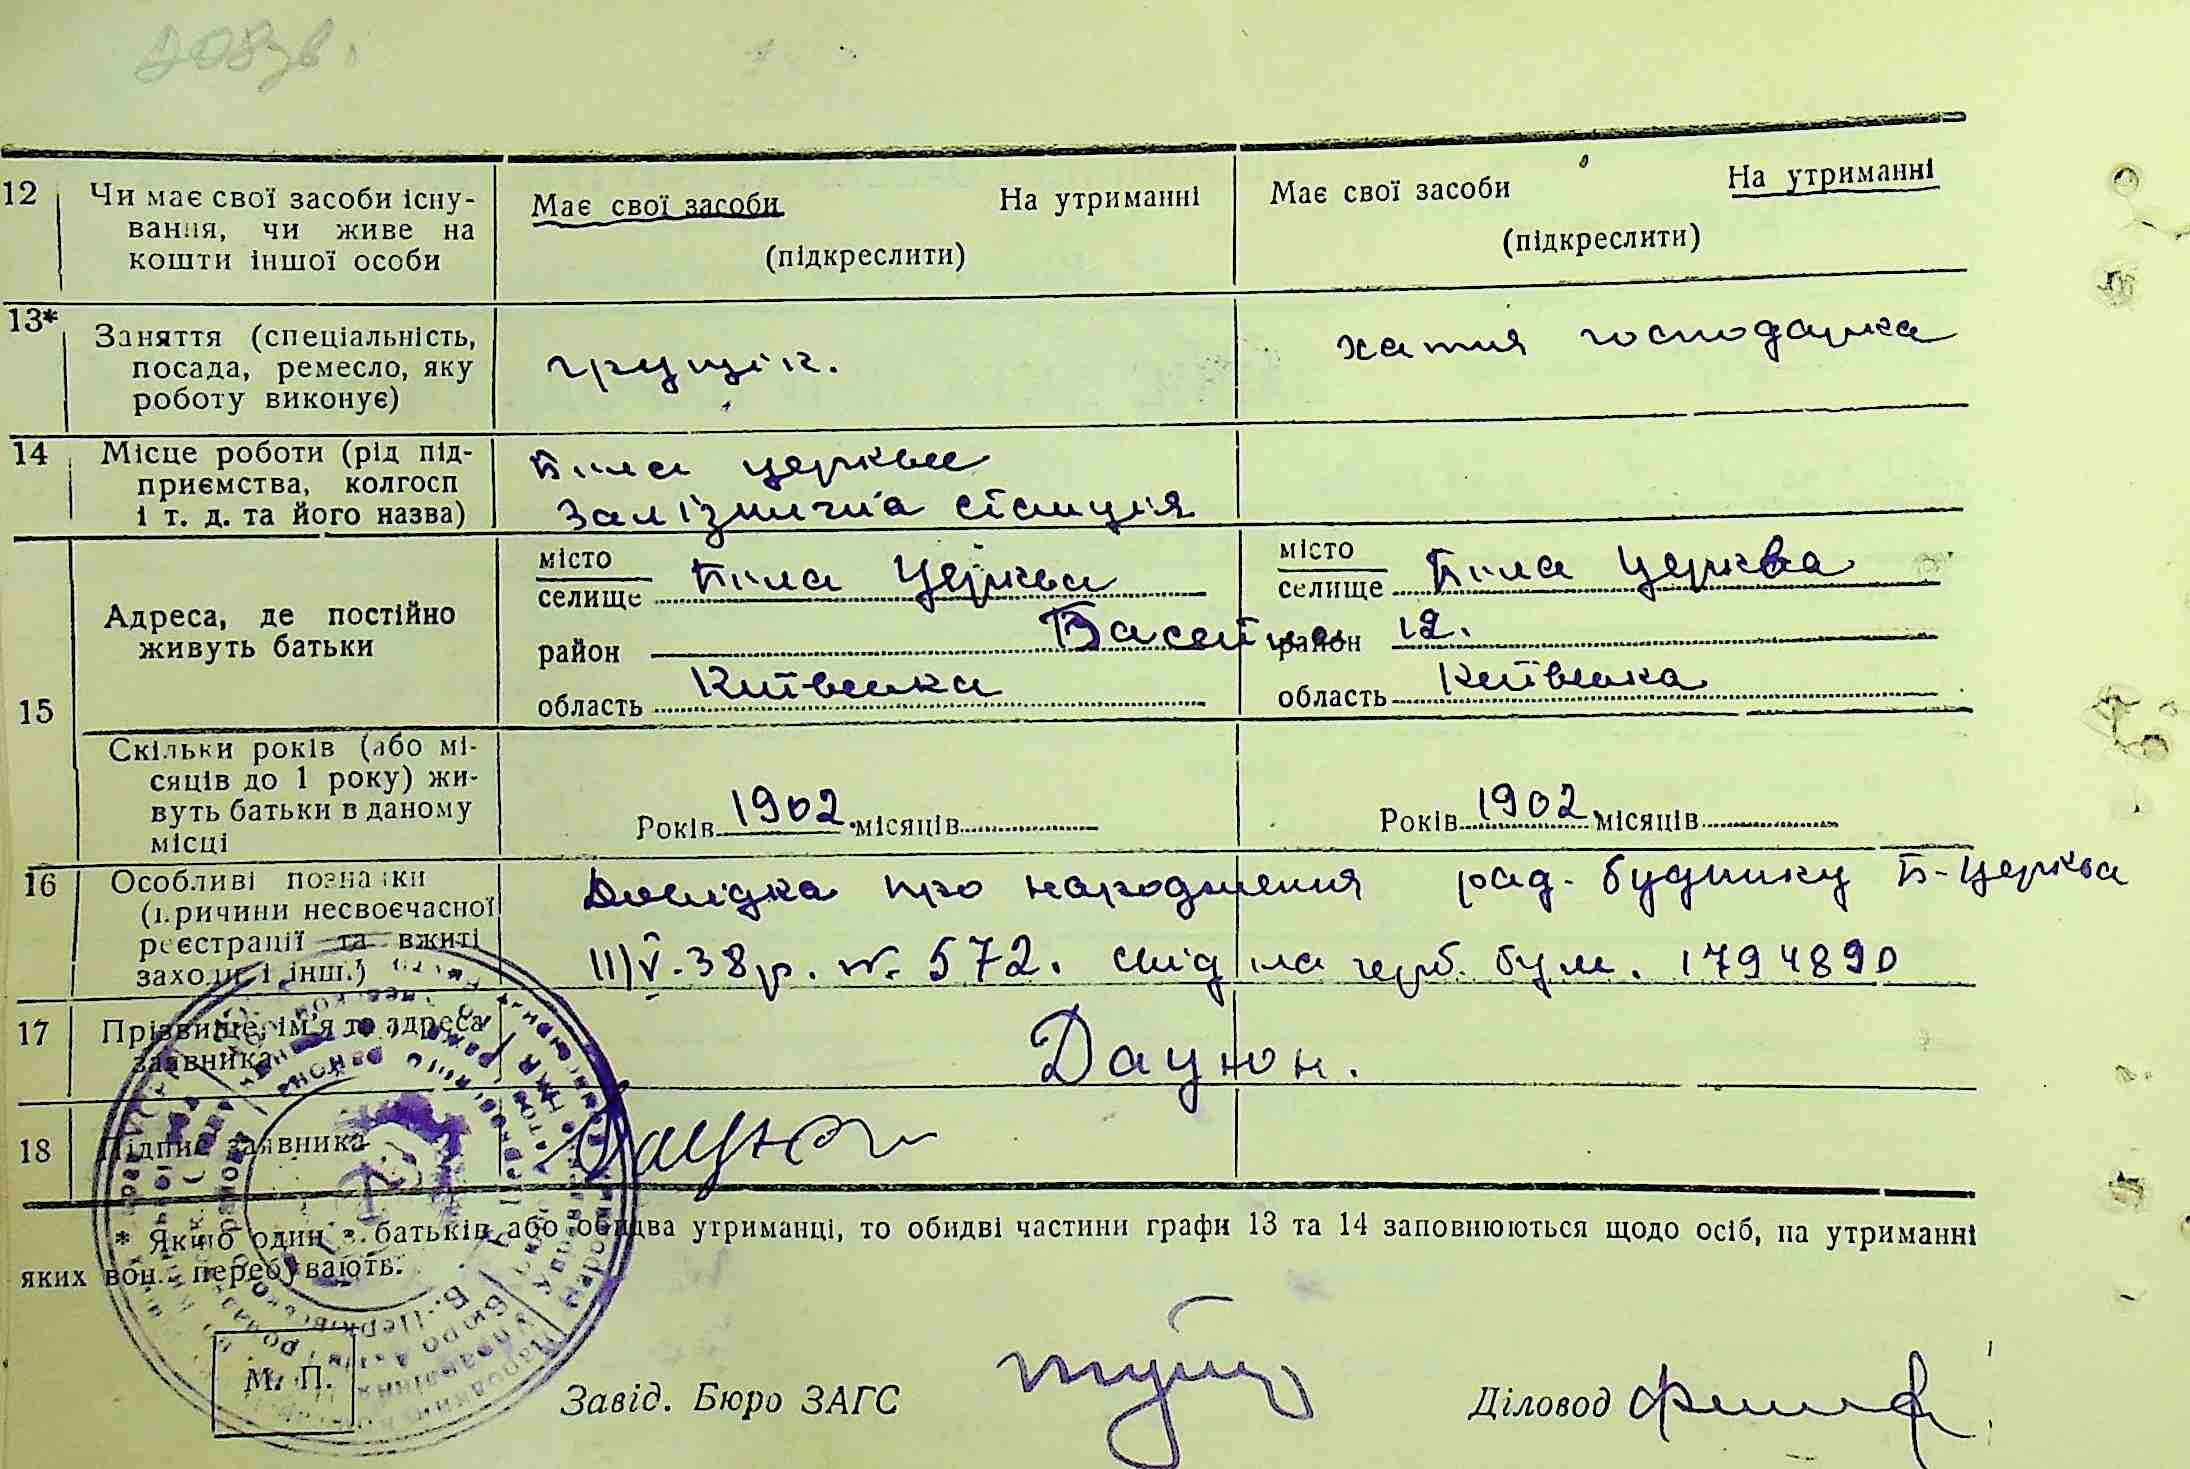 12 Чи має свої засоби існу-
вання, чи живе на
кошти іншої особи
Має свої засоби На утриманні
(підкреслити)
Має свої засоби На утриманні
(підкреслити)
13* Заняття (спеціальність,
посада, ремесло, яку
роботу виконує)
грущік.
хатня господарка
14 Місце роботи (рід під-
приємства, колгосп
і т. д. та його назва)
Біла церква
Залізнична станція
15 Адреса, де постійно
живуть батьки
місто
селище Біла Церква
район Басейна 12.
область Київська
місто
селище Біла Церква
район
область Київська
Скільки років (або мі-
сяців до 1 року) жи-
вуть батьки в даному
місці
Років 1902 місяців
Років 1902 місяців
16 Особливі познаки
(причини несвоєчасної
реєстрації та вжиті
заходи і інш.)
Довідка про народження рад. будинку Б-Церква
11/V-38р. № 572. на герб. бум. 1794890
17 Прізвище, ім'я та адреса
заявника
Даунон.
18 Підпис заявника
* Якщо один з батьків або обидва утриманці, то обидві частини графи 13 та 14 заповнюються щодо осіб, на утриманні
яких вони перебувають.
М. П.
Завід. Бюро ЗАГС
Діловод